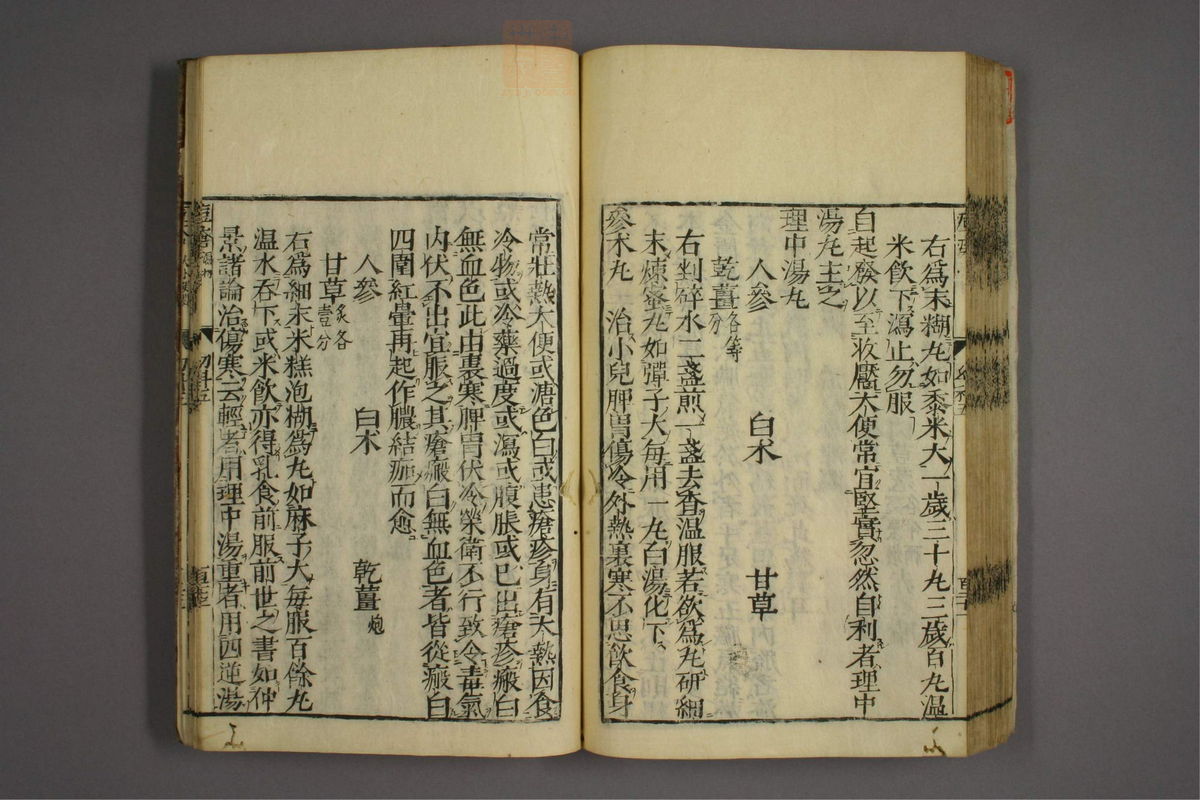 右為末糊丸如黍米大一歲三十丸三歲百丸温
米飲下瀉止勿服
自起發以至妝靨大便常宜堅實忽然自利者理中
湯丸主之
理中湯丸
人參 白朮 甘草
乾薑各等分
右剉碎水二盞煎一盞去柤温服若欲為丸研細
末煉蜜丸如彈子大每用一丸白湯化下
參朮丸 治小兒脾胃傷冷外熱裏寒不思飲食身
常壯熱大便或溏色白或患瘡疹身有大熱因食
冷物或冷藥過度或瀉或腹脹或已出瘡疹癜白
無血色此由裏寒脾胃伏冷榮衛不行致令毒氣
内伏不出宜服之其瘡癜白無血色者皆從癜白
四圍紅暈再起作膿結痂而愈
人參 白朮 乾薑炮
甘草炙各壹分
右為細末米糕泡糊為丸如麻子大每服百餘丸
温水吞下或米飲亦得乳食前服前世之書如仲
景諸論治傷寒云輕者用理中湯重者用四逆湯